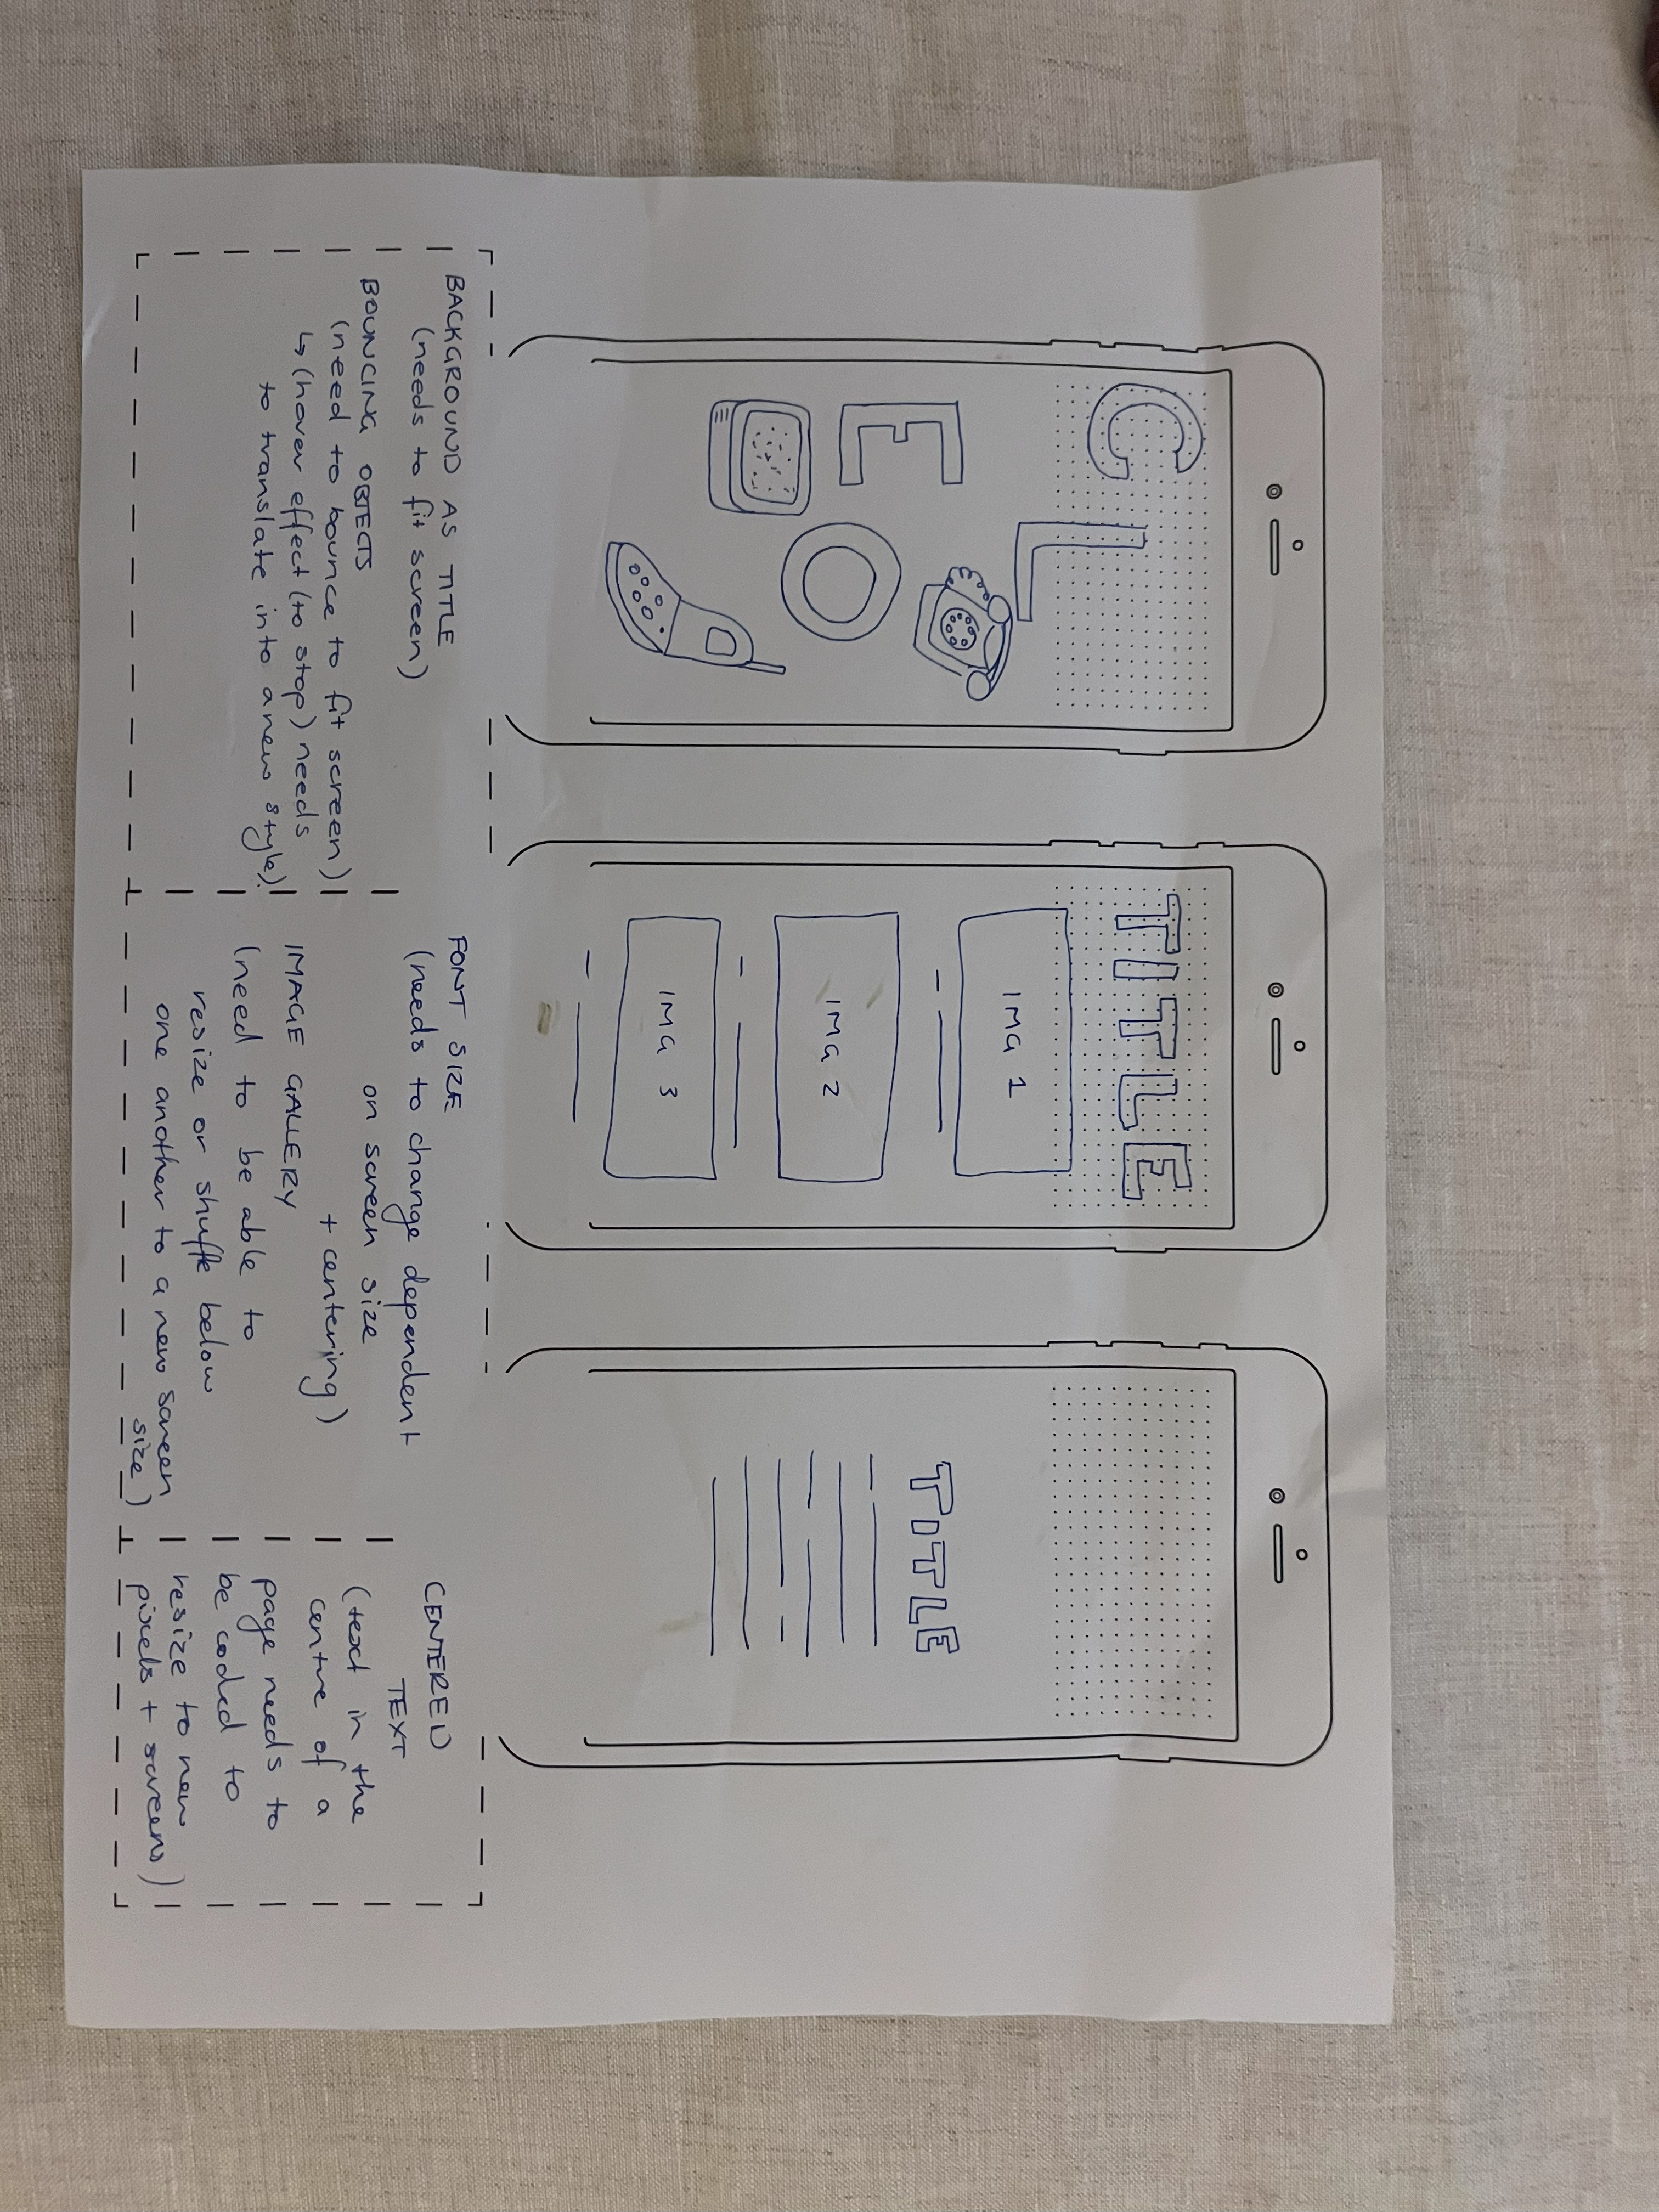 C
L
E
O
TITLE
IMG 1
IMG 2
IMG 3
TITLE
BACKGROUND AS TITLE
(needs to fit screen)
BOUNCING OBJECTS
(need to bounce to fit screen)
↳ (hover effect (to stop) needs
to translate into a new style).
FONT SIZE
(needs to change dependent
on screen size
+ centering)
IMAGE GALLERY
(need to be able to
resize or shuffle below
one another to a new screen
size)
CENTERED
TEXT
(text in the
centre of a
page needs to
be coded to
resize to new
pixels + screens)